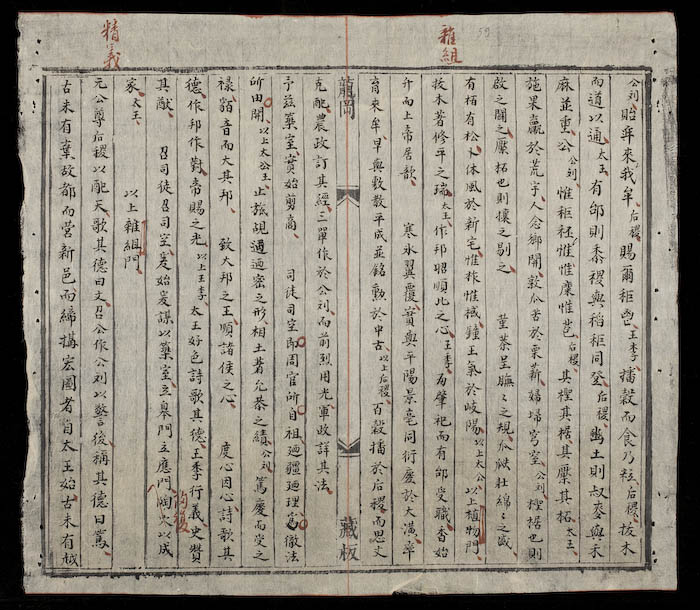 雜組
59
公刘 貽牟來我牟、后稷 賜爾秬鬯、王季 播穀而食乃粒、后稷 拔木
而道以通、太王 有邰則黍稷與稻秬同登、后稷 豳土則菽麥與禾
麻並重、公刘 惟秬秠惟糜惟芑、后稷 其檉其椐其檿其柘、太王
施果蠃於荒宇人念鄉開敦瓜苦於栗薪婦歸穹室、公刘 檉椐也則
啟之闢之檿柘也則攘之剔之 堇荼呈膴々之規瓜瓞壯綿々之盛
有栢有松卜休風於新宅惟柞惟棫鍾王氣於岐陽、以上太公 以上植物門
拔木著修平之瑞、太王 作邦昭順比之心、王季 為肇祀而有邰受職香始
升而上帝居歆 寒氷翼覆實與平陽景亳同衍慶於大潢
育來牟、早與敷教平成並銘勳於中古、以上后稷 百穀播於后稷而思文
龍岡 藏板
克配農政訂其經三單作於公刘而前烈用光軍政詳其法
予茲築室實始剪商 司徒司空即周官所自祖廼疆廼理為徹法
所由開、以上太公王 止旅覘過密之形相土著允恭之績、公刘 篤慶而受之
祿貊音而大其邦 致大邦之王順諸侯之心 度心因心詩歌其
德作邦作對帝賜之光 以上王季 太王好色詩歌其德王季行義史贊
其猷 召司徒召司空爰始爰謀以築室立皋門立應門陶穴以成
家太王、 以上雜組門
精義
元公尊后稷以配天歌其德曰文召公作公刘以警後稱其德曰篤
古未有棄故都而營新邑而締搆宏圖者自太王始古未有越